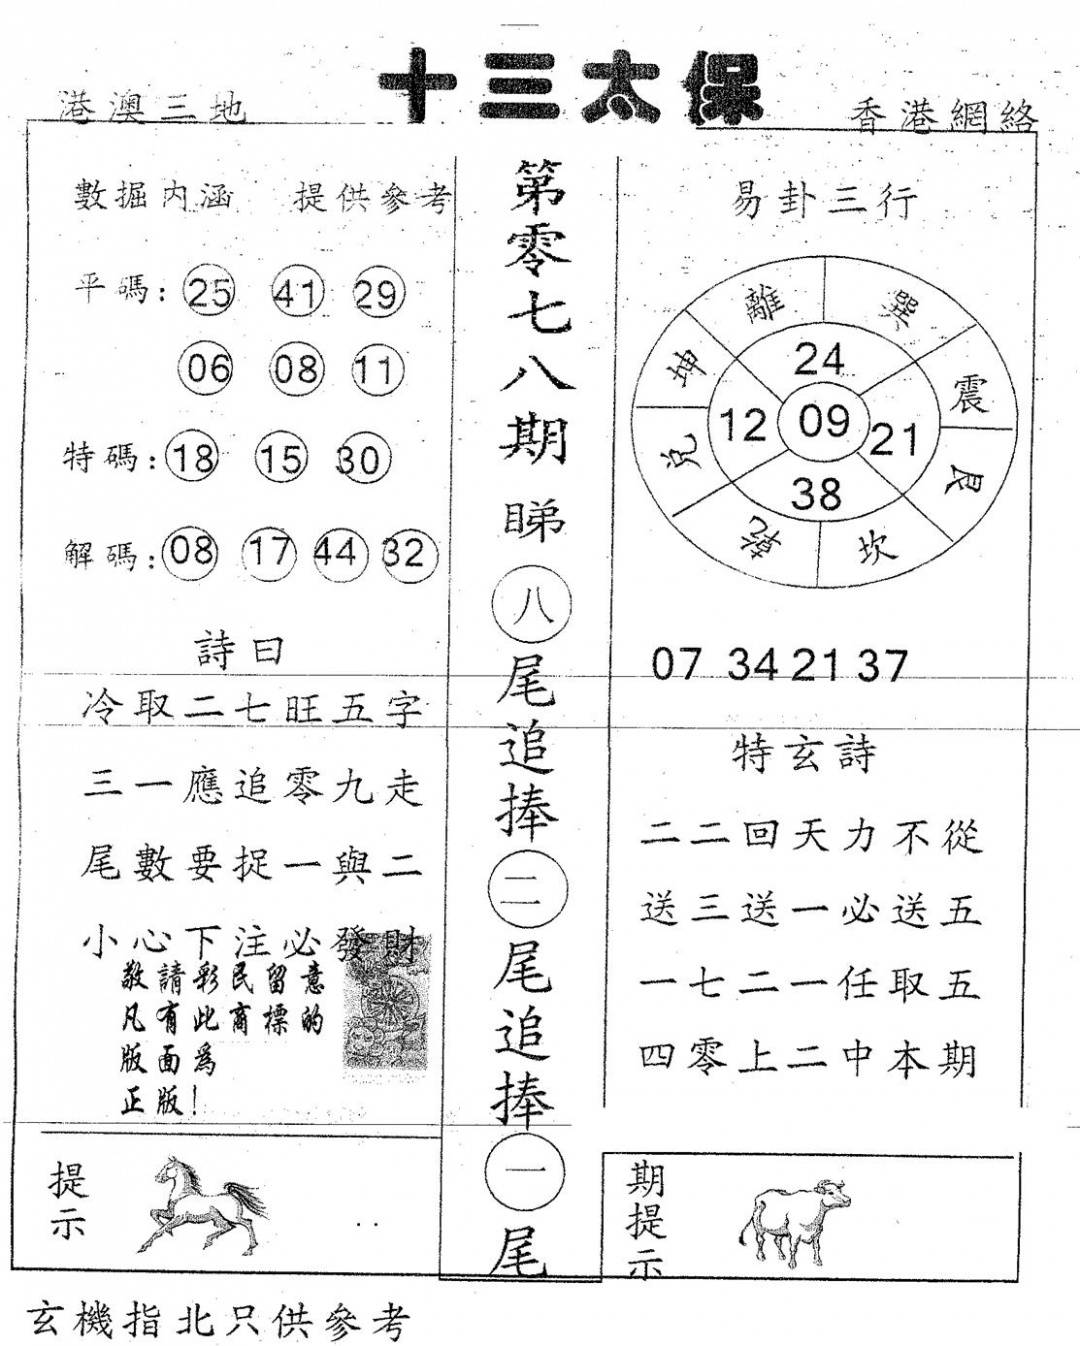 十三太保
港澳三地
香港網絡
數掘内涵 提供參考
平碼: 25 41 29
06 08 11
特碼: 18 15 30
解碼: 08 17 44 32
詩曰
冷取二七旺五字
三一應追零九走
尾數要捉一與二
小心下注必發財
敬請彩民留意
凡有此商標的
版面爲
正版!
提示
第零七八期
睇八尾追捧二尾追捧一尾
易卦三行
離 巽
坤 震
兑 艮
乾 坎
24
12 09 21
38
07 34 21 37
特玄詩
二二回天力不從
送三送一必送五
一七二一任取五
四零上二中本期
期提示
玄機指北只供參考